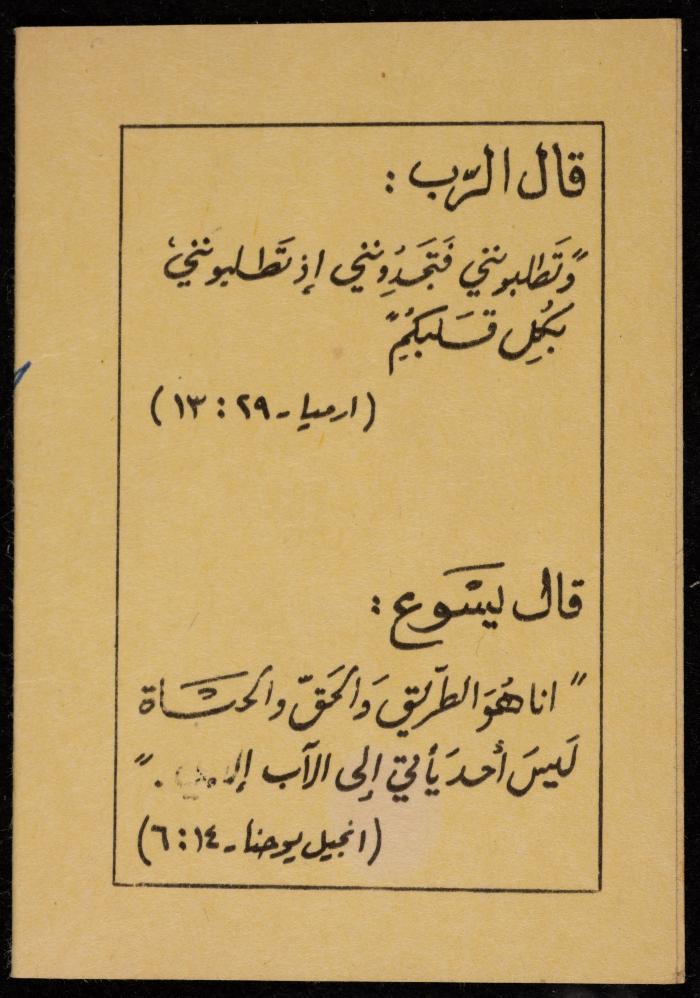 قال الرّب :
"وَتَطلبونني فَتَجَدُونِني إذ تَطلبونني
بكُلِ قَلبكُم"
(ارميا - ٢٩ : ١٣)
قال يَسْوع :
"انا هُوَ الطّريق وَالحَقّ والحَيَاة
لَيسَ أحد يَأتي إلى الآب إلا ."
(انجيل يوحنا - ١٤ : ٦)